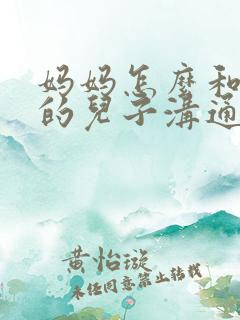 妈妈怎麽和
的兒子溝通
黄怡璇
未经同意禁止转载